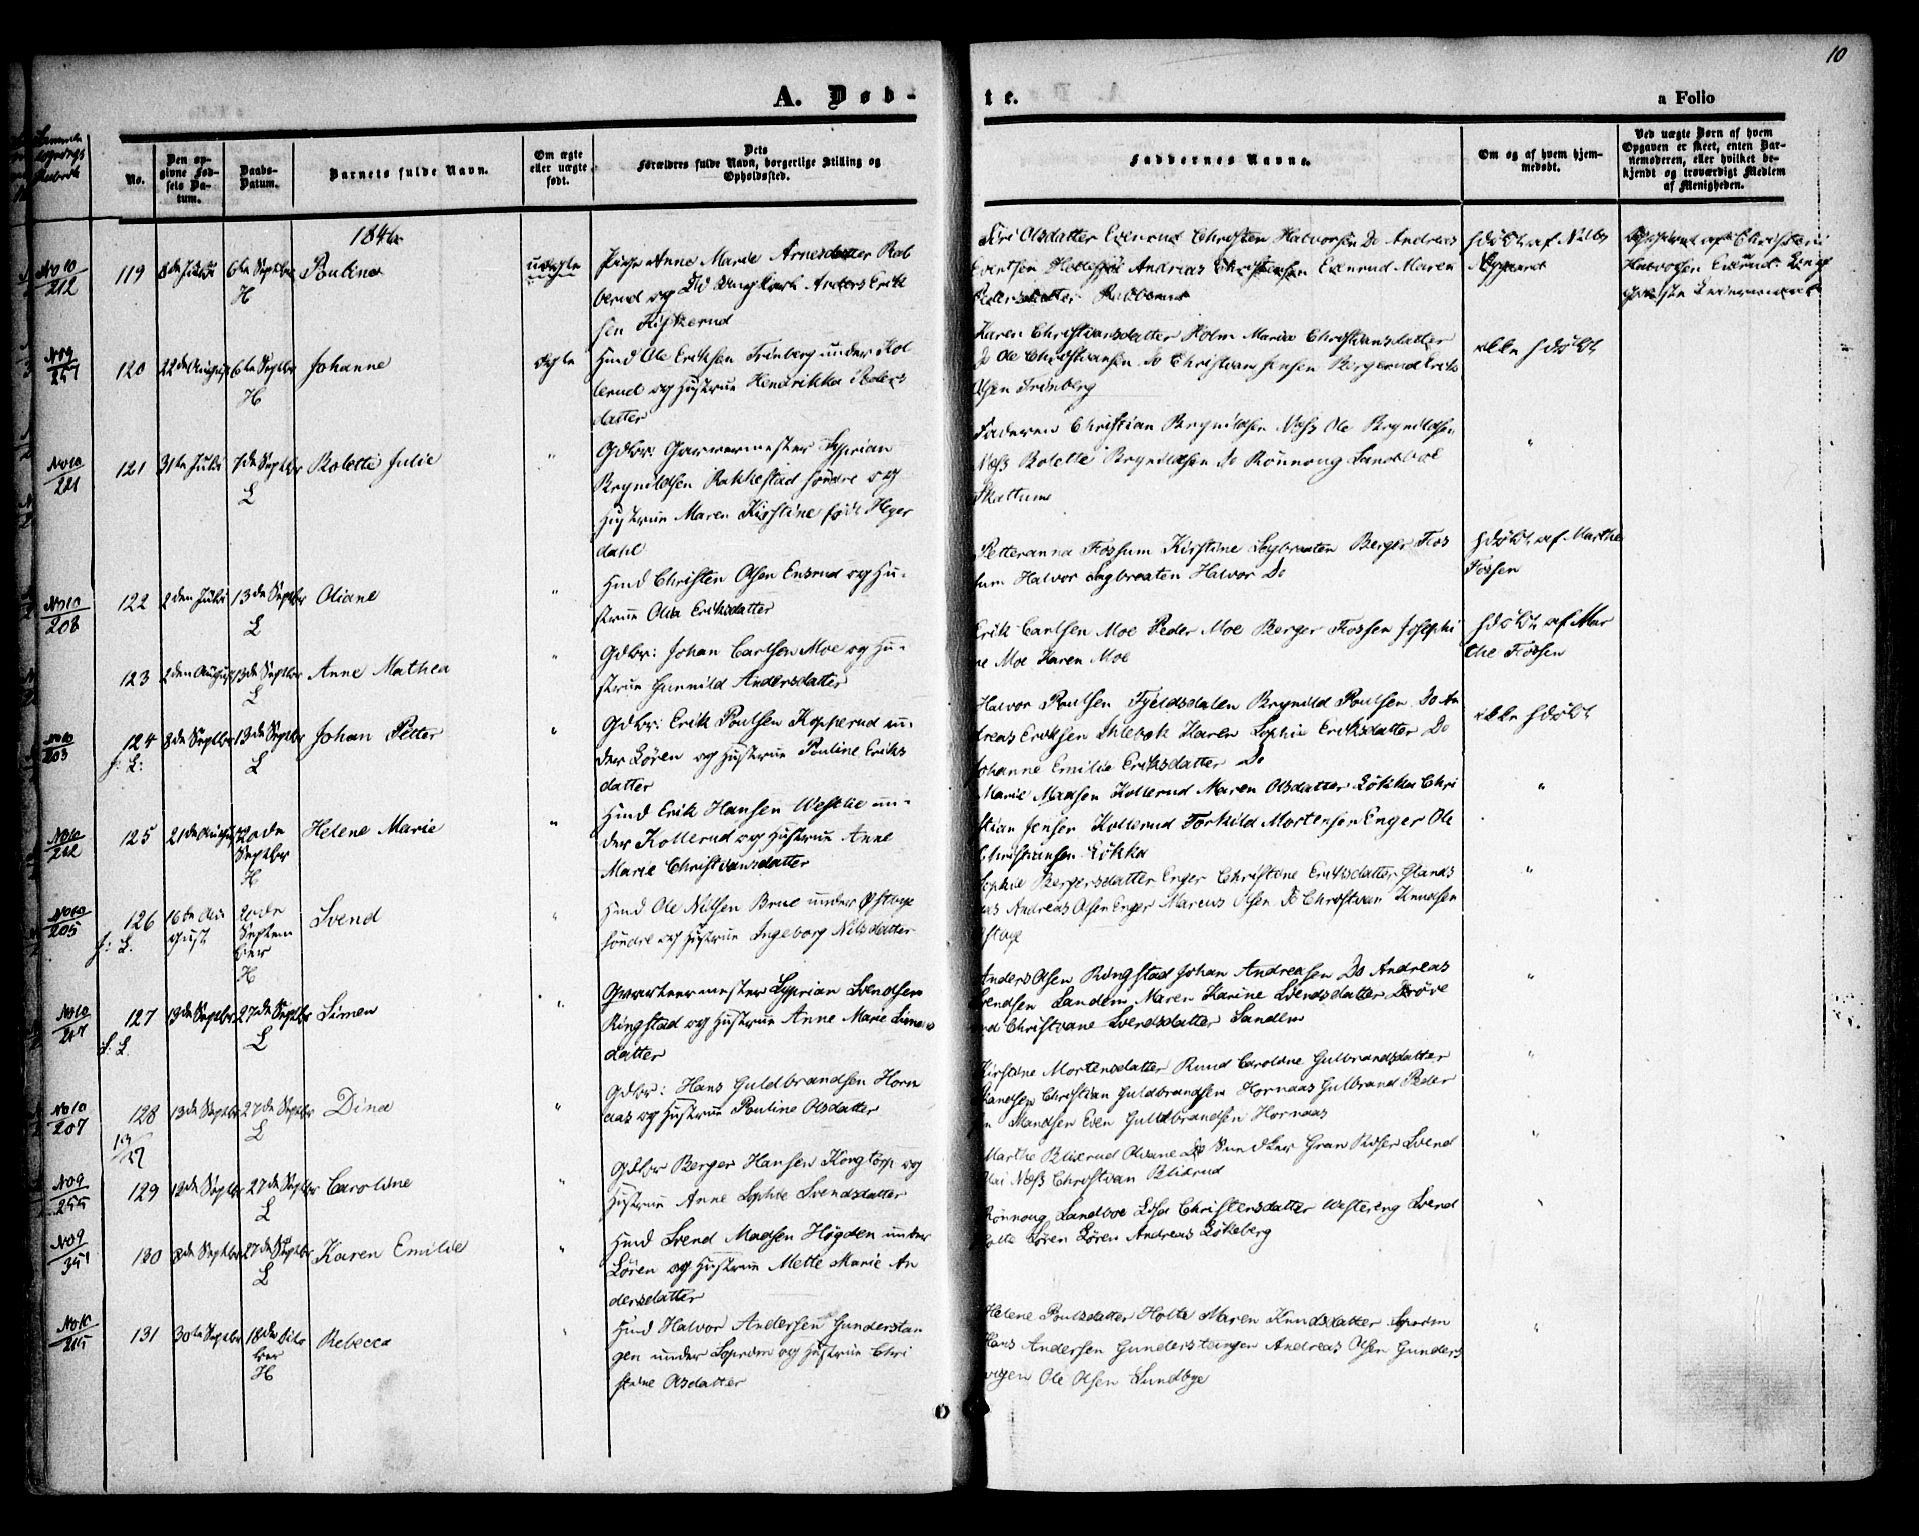 10
A. Døb-
te.
a Folio
No.
Den op-
givne Fød-
sels Da-
tum.
Daabs-
Datum.
Barnets fulde Navn.
Om ægte
eller uægte
født.
Dets
Forældres fulde Navn, borgerlige Stilling og
Opholdssted.
Faddernes Navne.
Om og af hvem hjem-
medøbt.
Ved uægte Børn af hvem
Opgaven er skeet, enten Bar-
nemoderen, eller hvilket be-
kjendt og troværdigt Medlem
af Menigheden.
1846
No 10
212
119
8de Juli
6te Septbr
H
Pauline
uægte
Pige Anne Marie Arnesdatter Rab
berud og Ung Karl Anders Erik
sen Fiskerud
Siri Olsdatter Evenrud Christen Halvorsen Do Andreas
Evensen Andreas Christensen Evenrud Maren
Pedersdatter Rabberud
hdøbt af Nils
Nygaard
Halvorsen Evenrud
No 9
257
120
22de August
6te Septbr
H
Johanne
ægte
Hmd Ole Eriksen Trønberg under Kol
lerud og Hustrue Hendrikka
datter
Karen Christiansdatter Holm Maria Christiansdatter
Do Ole Christiansen Do Christian Jensen Bergerud Erik
Olsen Trønberg
ikke hdøbt
No 10
221
121
31te Juli
7de Septbr
L
Bolette Julie
"
Gdbr: Garvermester Syprian
Brynildsen Rakkestad søndre og
Hustrue Maren Kirstine født Heyer
dahl
Faderen Christian Brynildsen Næss Ole Brynildsen
Næss Bolette Brynildsen Do Rønnong Sandboe
Skattum
"
No 10
208
122
2den Juli
13de Septbr
L
Oliane
"
Hmd Christen Olsen Ensrud og Hu-
strue Olia Eriksdatter
Petteranna Fossum Kirstine Sagbraaten Berger Fos
sum Halvor Sagbraaten Halvor Do
hdøbt af Marthe
Fossen
123
2den August
13de Septbr
L
Anne Mathea
"
Gdbr: Johan Carlsen Moe og Hu-
strue Gunnild Andersdatter
Erik Carlsen Moe Peder Moe Berger Fossen Josephi
ne Moe Karen Moe
hdøbt af Mar
the Fossen
No 10
203
124
f: L:
8de Septbr
13de Septbr
L
Johan Petter
"
Gdbr: Erik Poulsen Kopperud un-
der Løren og Hustrue Pauline Eriks
datter
Halvor Poulsen Fjeldsdalen Brynild Poulsen Do An
dreas Eriksen Slebak Karen Sophie Eriksdatter Do
Johanne Emilie Eriksdatter Do
ikke hdøbt
No 10
222
125
21de August
20de
Septbr
H
Helene Marie
"
Hmd Erik Hansen Westlie un-
der Kollerud og Hustrue Anne
Marie Christiansdatter
Marie Madsen Kollerud Maren Olsdatter Løkka Chri
stian Jensen Kollerud Torkild Mortensen Enger Ole
Christiansen Løkka
"
No 10
205
126
f: L.
16de Au
gust
20de
Septem
ber
H
Svend
"
Hmd Ole Nilsen Brue under Østbye
søndre og Hustrue Ingeborg Nilsdatter
Sophie Bergersdatter Enger Christine Eriksdatter Glands
Andreas Olsen Enger Marcus Olsen Do Christian Knudsen
Østbye
"
No 10
217
127
f. L.
13de Septbr
27de Septbr
L
Simen
"
Qvarteermester Syprian Svendsen
Ringstad og Hustrue Anne Marie Simens
datter
Anders Olsen Ringstad Johan Andreasen Do Andreas
Svendsen Sanden Maren Karine Svendsdatter
Christiane Svendsdatter Sanden
"
No 10
207
128
13de Septbr
27de Septbr
L
Dina
"
Gdbr: Hans Guldbrandsen Horn
aas og Hustrue Pauline Olsdatter
Kirstine Mortensdatter Ruud Caroline Gulbrandsdatter
Christian Guldbrandsen Hornaas Gulbrand Peder
Even Guldbrandsen Hornaas
"
No 9
255
129
13de Septbr
27de Septbr
L
Caroline
"
Gdbr Berger Hansen Kongtorp og
Hustrue Anne Sophie Svendsdatter
Marthe Blixrud Oliane Do Gran Svend
Næss Christian Blixrud
"
No 9
351
130
8de Septbr
27de Septbr
L
Karen Emilie
"
Hmd Svend Madsen Høgden under
Løren og Hustrue Mette Marie An
dersdatter
Rønnoug Sandboe Lisa Christensdatter Westereng Svend
Holte Søren Løren Andreas Løkeberg
"
No 10
215
131
30te Septbr
18de Octo
ber
H
Rebecca
"
Hmd Halvor Andersen Gunderstan
gen under Soprim og Hustrue Chri
stine Olsdatter
Helene Poulsdatter Holte Maren Knudsdatter Soprim
Hans Andersen Gunderstangen Andreas Olsen Gunders
Ole Olsen Sundbye
"